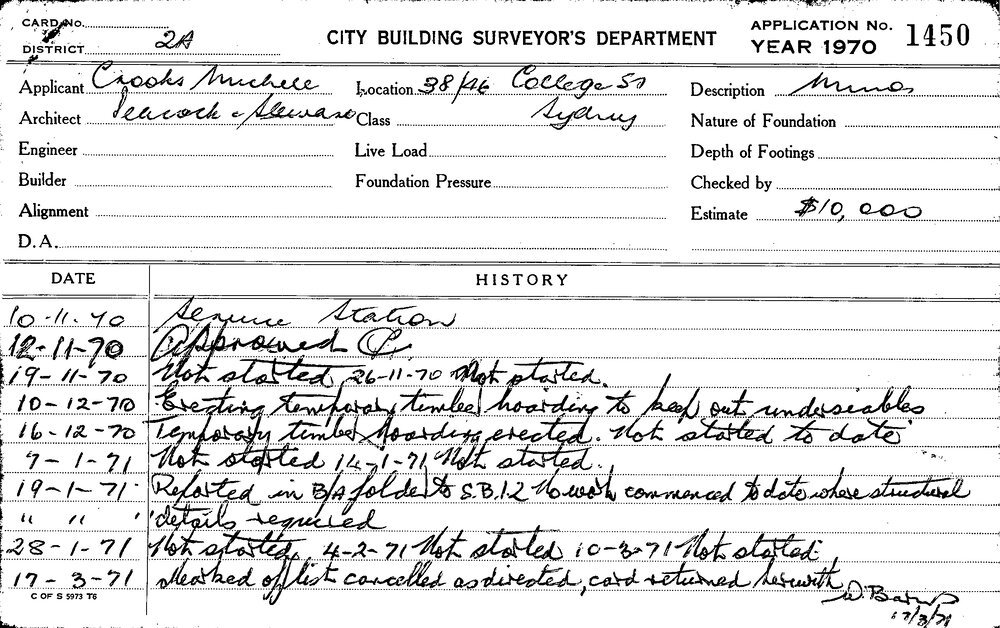 CARD No.
DISTRICT 2A
CITY BUILDING SURVEYOR'S DEPARTMENT
APPLICATION No. 1450
YEAR 1970
Applicant Crooks Michell Location 38/46 College St Description Minor
Architect Peacock & Class Sydney Nature of Foundation
Engineer Live Load Depth of Footings
Builder Foundation Pressure Checked by
Alignment Estimate $10,000
D.A.
DATE HISTORY
10-11-70 Service Station
12-11-70 Approved
19-11-70 Not started, 26-11-70 Not started.
10-12-70 Erecting temporary timber hoarding to keep out undersiables
16-12-70 Temporary timber hoarding erected. Not started to date
7-1-71 Not started 14-1-71 Not started.
19-1-71 Reported in B/A folder to S.B.I.2 No work commenced to date where structural
" " " details required
28-1-71 Not started, 4-2-71 Not started 10-3-71 Not started
17-3-71 Marked off list cancelled as directed, card returned herewith
W. 17/3/71
C OF S 5973 T6